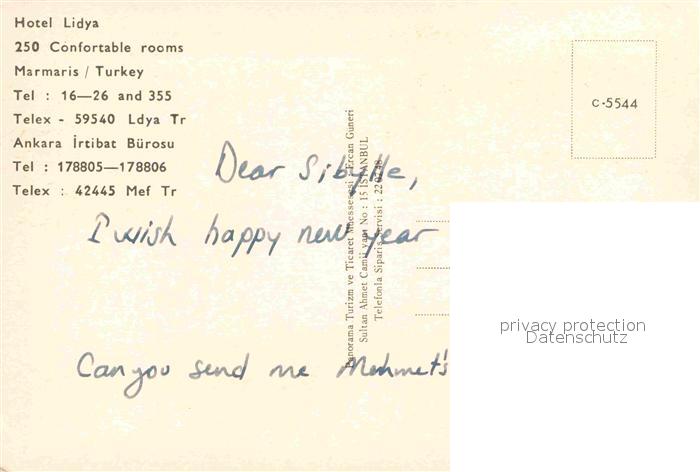 Hotel Lidya
250 Confortable rooms
Marmaris / Turkey
Tel : 16—26 and 355
Telex - 59540 Ldya Tr
Ankara İrtibat Bürosu
Tel : 178805—178806
Telex : 42445 Mef Tr
C-5544
Panorama Turizm ve Ticaret Müessesesi : Ercan Güneri
Sultan Ahmet Camii yanı No : 15 İSTANBUL
Telefonla Sipariş Servisi :
Dear Sibylle,
I wish happy new year
Can you send me Mehmet's
privacy protection
Datenschutz